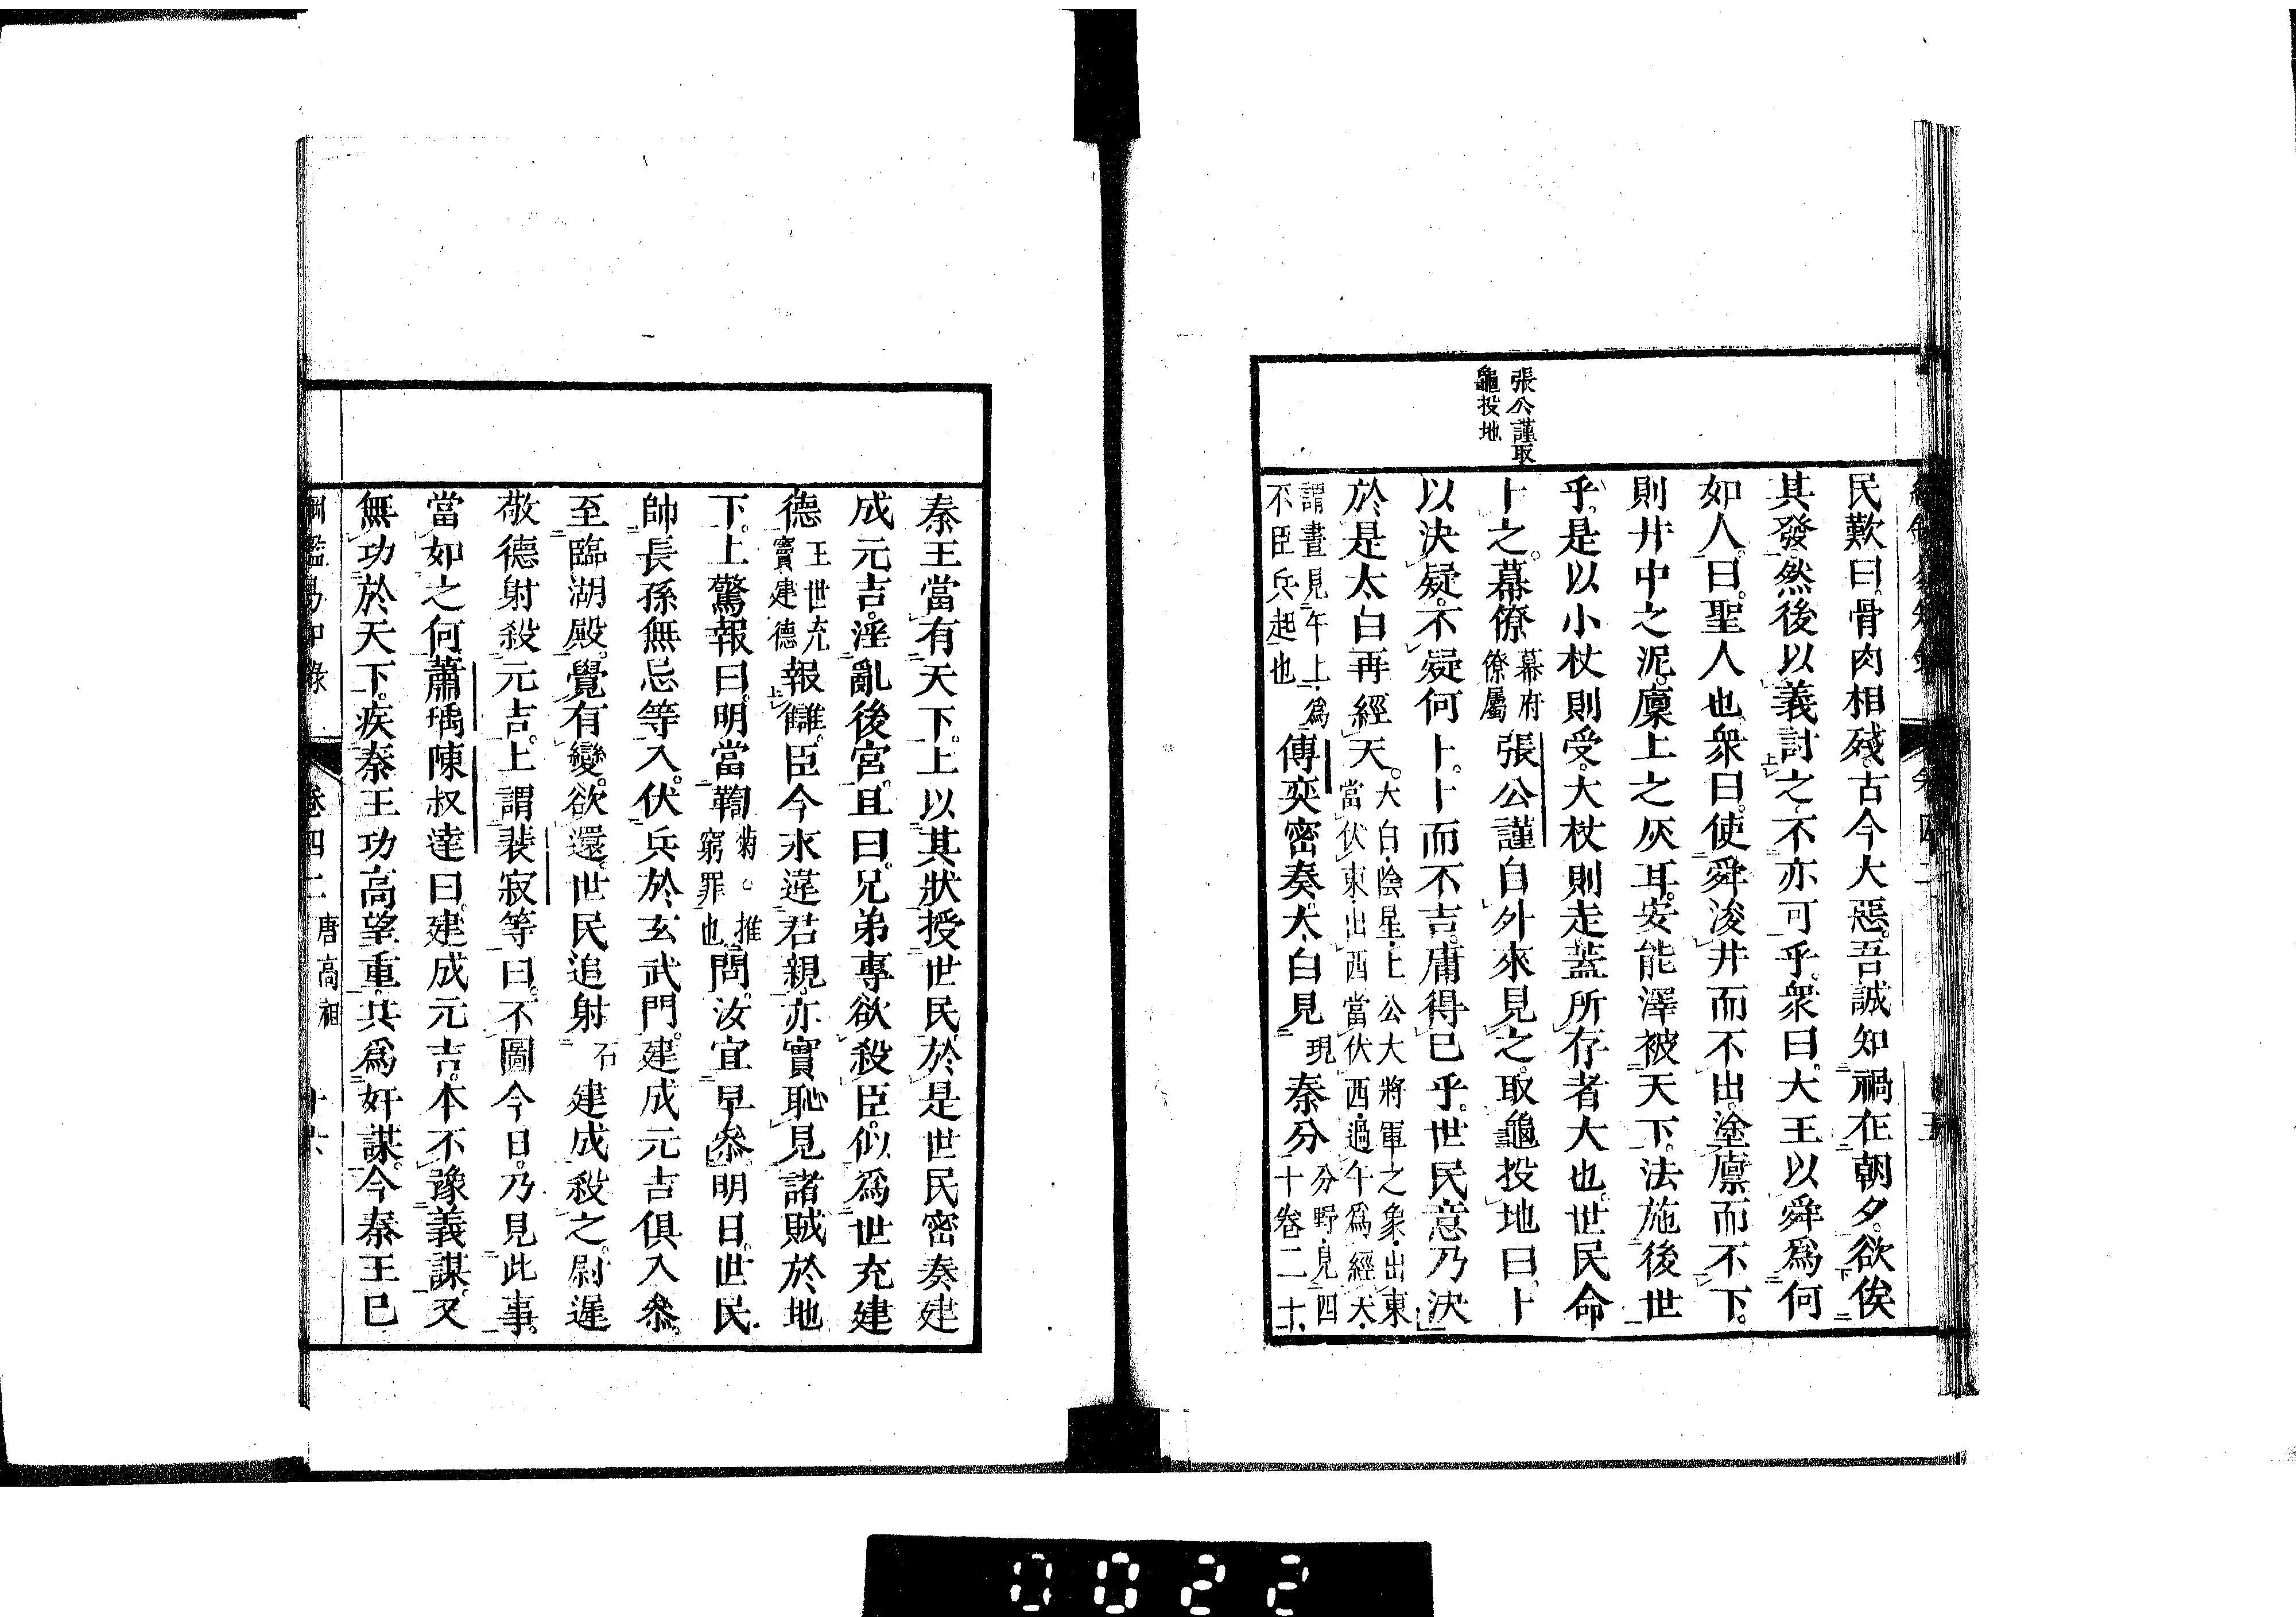 張公謹取
龜投地
民歎曰。骨肉相殘。古今大惡。吾誠知禍在朝夕。欲俟
其發。然後以義討之。不亦可乎。衆曰。大王以舜爲何
如人。曰。聖人也。衆曰。使舜浚井而不出。塗廩而不下。
則井中之泥。廩上之灰耳。安能澤被天下。法施後世
乎。是以小杖則受。大杖則走。蓋所存者大也。世民命
卜之。幕僚幕府僚屬張公謹自外來見之。取龜投地曰。卜
以決疑。不疑何卜。卜而不吉。庸得已乎。世民意乃決
於是太白再經天。大白陰星上公大將軍之象出東當伏東出西當伏西過午爲經天
謂晝見午上爲不臣兵起也傅奕密奏太白見現秦分分野見四十卷二十
綱鑑易知錄 卷四二 唐高祖 十六
秦王當有天下。上以其狀授世民於是世民密奏建
成元吉。淫亂後宮。且曰。兄弟專欲殺臣。似爲世充建
德王世充竇建德報讎。臣今永違君親。亦實恥見諸賊於地
下。上驚報曰。明當鞫菊。推窮罪也問。汝宜早參明日。世民
帥長孫無忌等入。伏兵於玄武門。建成元吉俱入參。
至臨湖殿。覺有變。欲還。世民追射石建成殺之。尉遲
敬德射殺元吉。上謂裴寂等曰。不圖今日。乃見此事。
當如之何蕭瑀陳叔達曰。建成元吉。本不豫義謀。又
無功於天下。疾秦王功高望重。共爲奸謀。今秦王已
0022